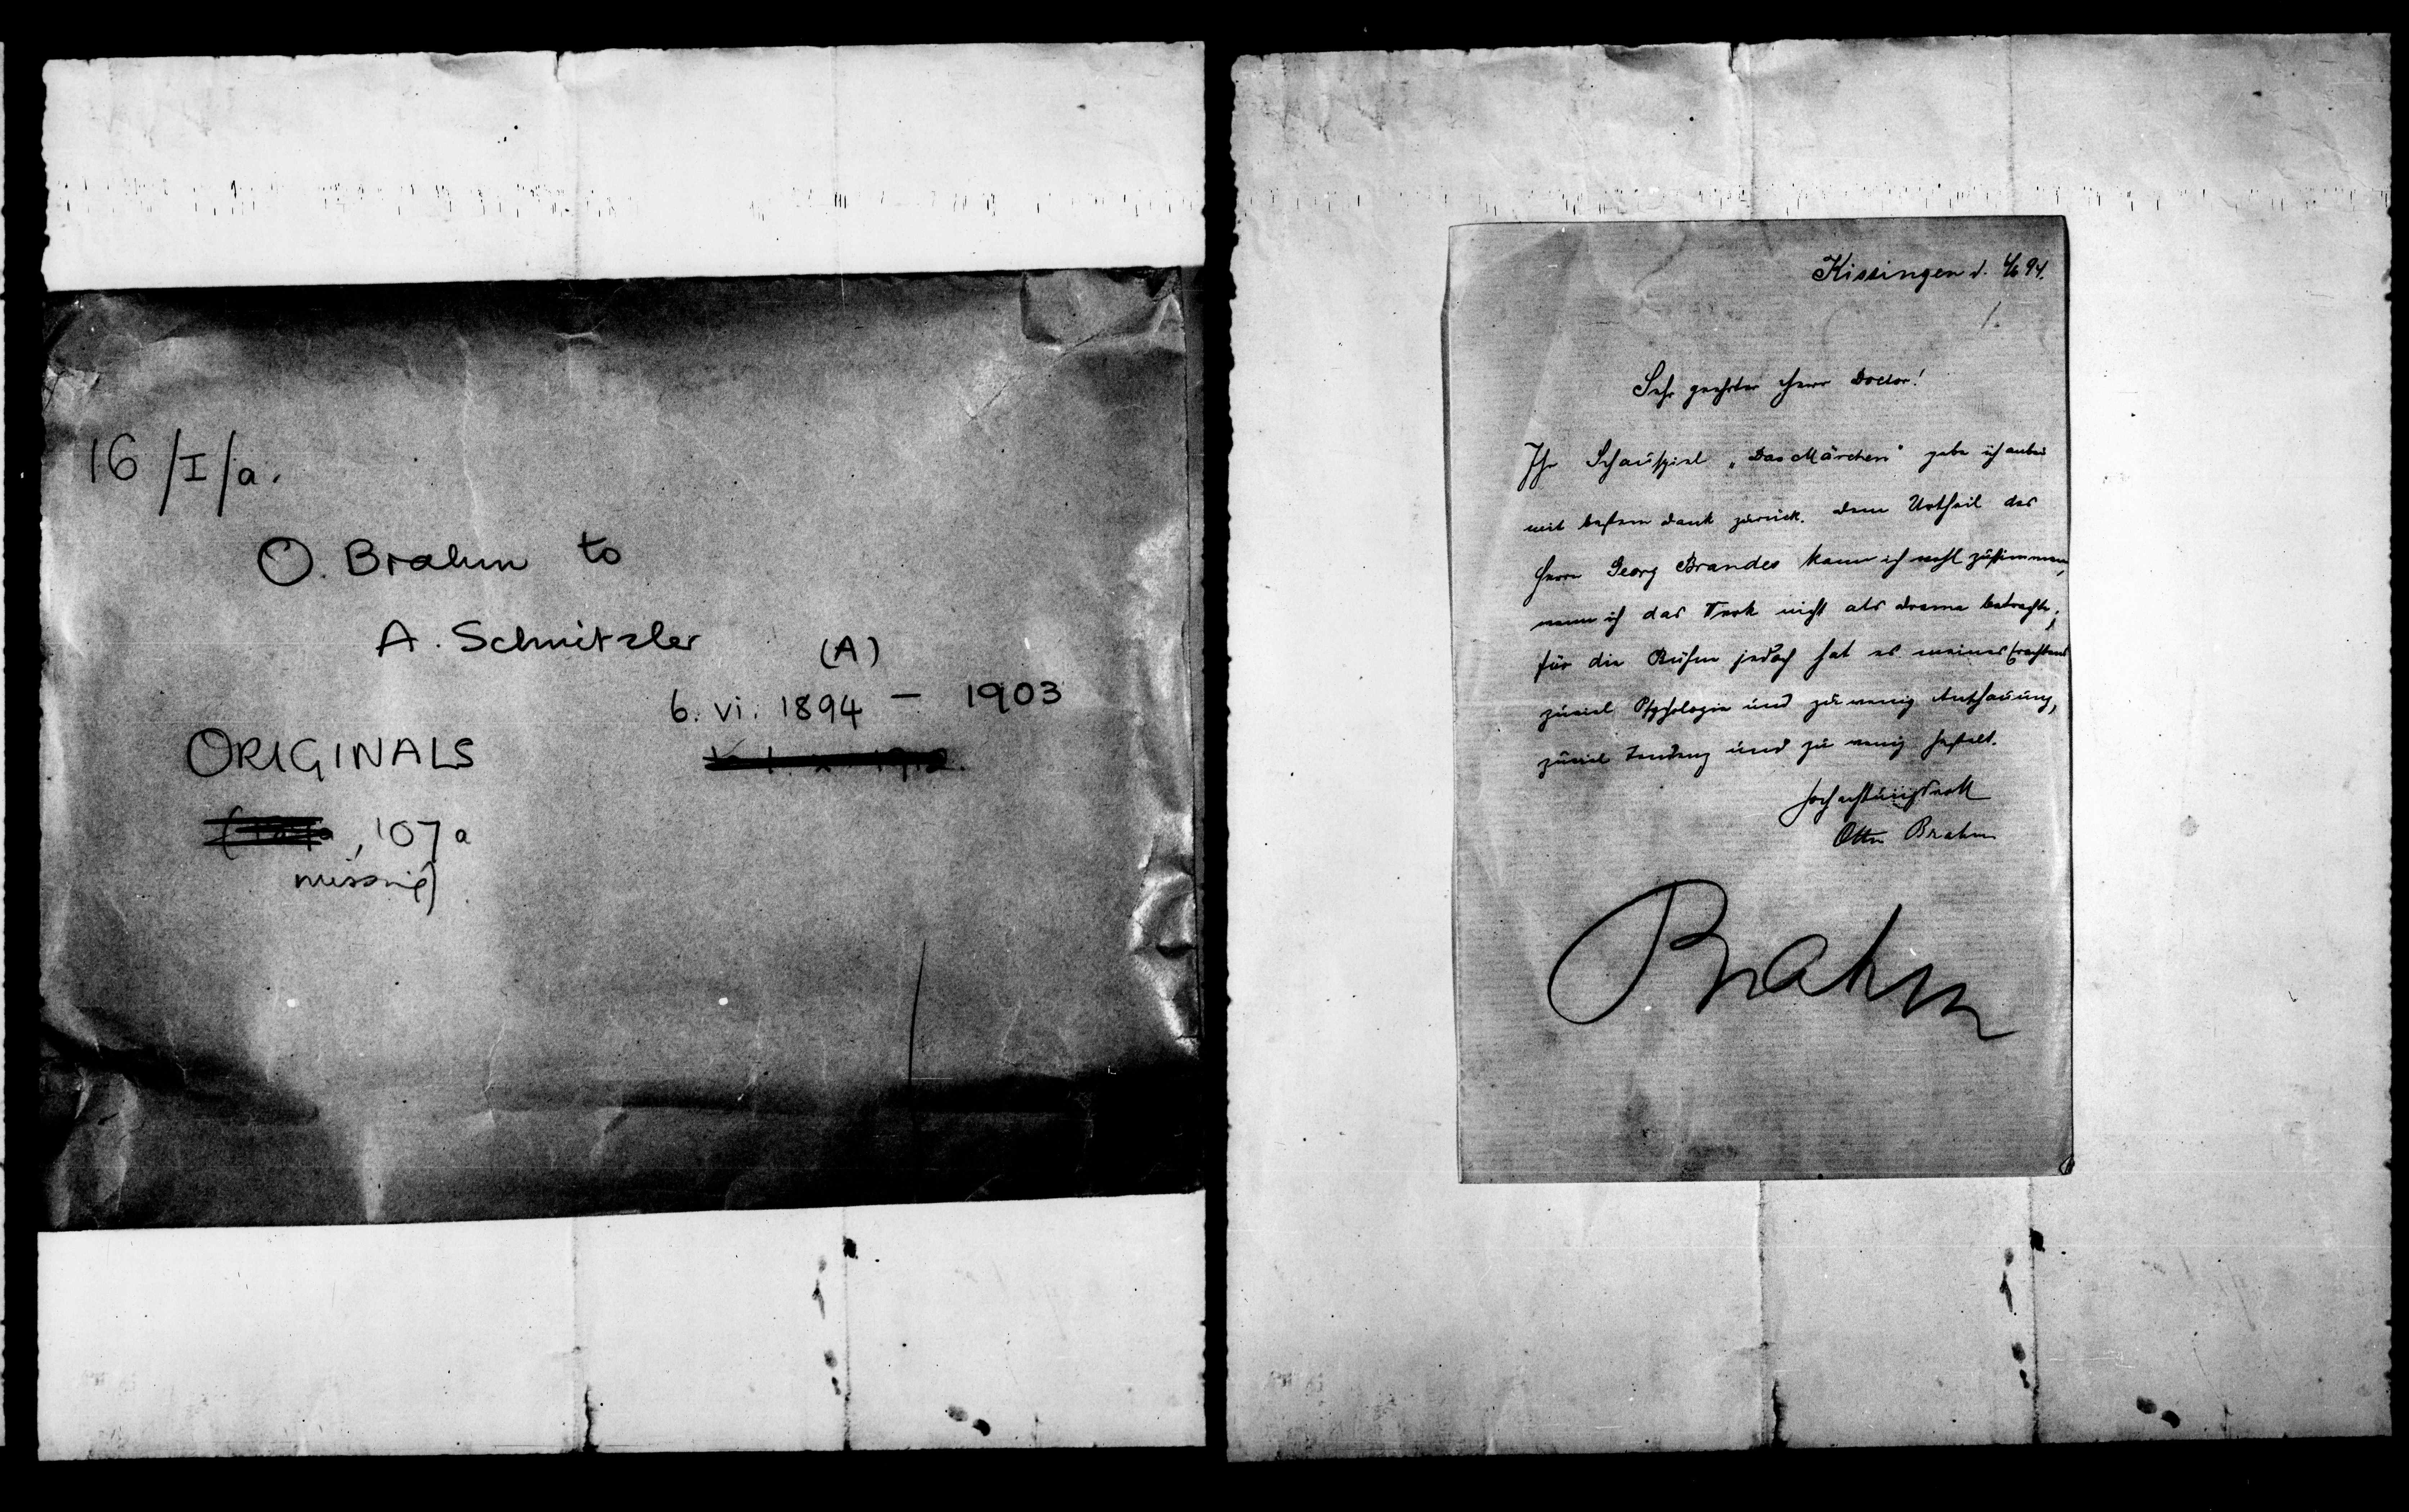 16/I/a.
O. Brahm to
A. Schnitzler
(A)
6. vi. 1894 – 1903
ORIGINALS
, 107a
missing)
Kissingen d. 4/6 94.
1.
Sehr geehrter Herr Doctor!
Ihr Schauspiel „Das Märchen" gebe ich anbei
mit bestem Dank zurück. Dem Urtheil des
Herrn Georg Brandes kann ich wohl zustimmen,
wenn ich das Werk nicht als Drama betrachte;
für die Bühne jedoch hat es meines Erachtens
zuviel Psychologie und zu wenig Anschauung,
zuviel Tendenz und zu wenig Gestalt.
Hochachtungsvoll
Otto Brahm
Brahm